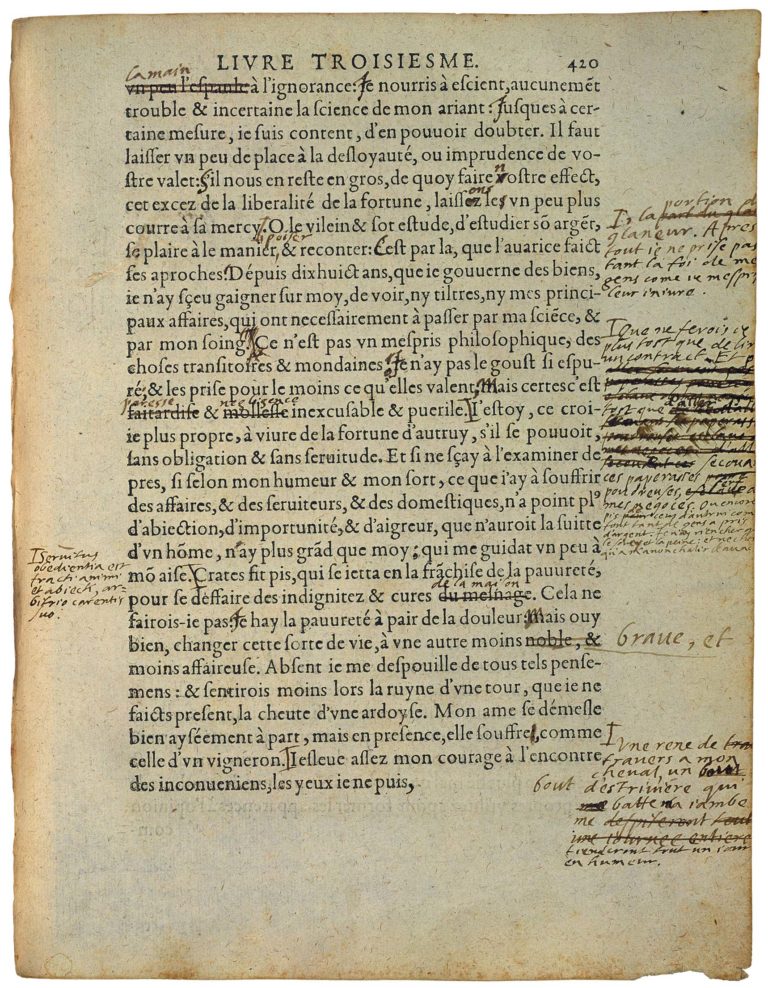 LIVRE TROISIESME. 420
la main
vn peu l'espaule à l'ignorance: Je nourris à escient, aucunemēt
trouble & incertaine la science de mon ariant: Jusques à cer-
taine mesure, ie suis content, d'en pouuoir doubter. Il faut
laisser vn peu de place à la desloyauté, ou imprudence de vo-
stre valet: S'il nous en reste en gros, de quoy faire nostre effect,
cet excez de la liberalité de la fortune, laissons les vn peu plus
courre à sa mercy
portion
I, la part du
glaneur. Apres
tout ie ne prise pas
tant la foi de me
gens come ie mespri
leur iniure.
O le vilein & sot estude, d'estudier sō argēt,
poiser
se plaire à le manier, & reconter: C'est par la, que l'auarice faict
ses aproches. Dépuis dixhuict ans, que ie gouuerne des biens,
ie n'ay sçeu gaigner sur moy, de voir, ny tiltres, ny mes princi-
paux affaires, qui ont necessairement à passer par ma sciēce, &
par mon soing. Ce n'est pas vn mespris philosophique, des
choses transitoires & mondaines: Je n'ay pas le goust si espu-
ré, & les prise pour le moins ce qu'elles valent: Mais certes c'est
paresse negligence
faitardise & mollesse inexcusable & puerile.
I Que ne ferois ie
plus tost que de lir
un contract. Et
secoua
ces paperasses
poudreuses,
mes negoces. Ou encore
pis
font tant de gens a pris
d'argent. Ie n'ay rien cher q
le et la peine: et ne che
qu'a m'anonchalir et aua
I'estoy, ce croi-
ie plus propre, à viure de la fortune d'autruy, s'il se pouuoit,
sans obligation & sans seruitude. Et si ne sçay à l'examiner de
pres, si selon mon humeur & mon sort, ce que i'ay à souffrir
des affaires, & des seruiteurs, & des domestiques, n'a point pl9
d'abiection, d'importunité, & d'aigreur, que n'auroit la suitte
d'vn hōme, n'ay plus grād que moy, qui me guidat vn peu à
mō aise.
I Seruitus
obedientia est
fracti animi
et abiecti, ar-
bitrio carentis
suo.
Crates fit pis, qui se ietta en la frāchise de la pauureté,
de la maison
pour se deffaire des indignitez & cures du mesnage. Cela ne
fairois-ie pas: Je hay la pauureté à pair de la douleur: Mais ouy
bien, changer cette sorte de vie, à vne autre moins noble, & braue, et
moins affaireuse. Absent ie me despouille de tous tels pense-
mens: & sentirois moins lors la ruyne d'vne tour, que ie ne
faicts present, la cheute d'vne ardoyse. Mon ame se démesle
bien ayséement à part, mais en presence, elle souffre, comme
celle d'vn vigneron.
I Vne rene de
trauers a mon
cheual, un
bout destriuiere qui
batte ma iambe
me despiteront tout
une iournee entiere
tienderont tout un iour
en humeur.
I'esleue assez mon courage à l'encontre
des inconueniens, les yeux ie ne puis,